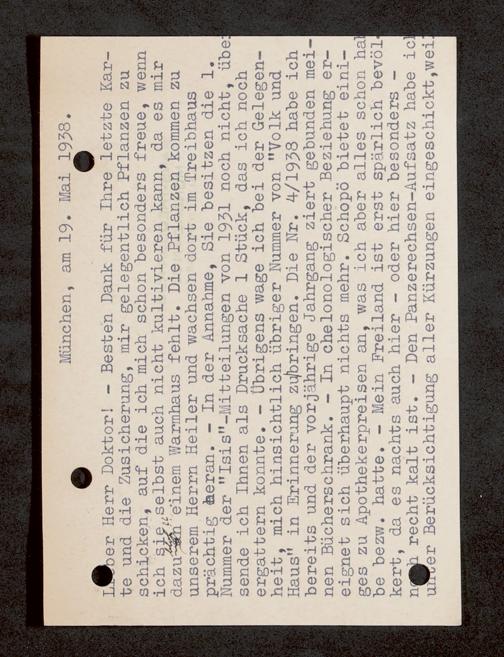 München, am 19. Mai 1938.
Lieber Herr Doktor! - Besten Dank für Ihre letzte Kar-
te und die Zusicherung, mir gelegentlich Pflanzen zu
schicken, auf die ich mich schon besonders freue, wenn
ich sie selbst auch nicht kultivieren kann, da es mir
dazu ein einem Warmhaus fehlt. Die Pflanzen kommen zu
unserem Herrn Heiler und wachsen dort im Treibhaus
prächtig heran. - In der Annahme, Sie besitzen die 1.
Nummer der "Isis"-Mitteilungen von 1931 noch nicht, über
sende ich Ihnen als Drucksache 1 Stück, das ich noch
ergattern konnte. - Übrigens wage ich bei der Gelegen-
heit, mich hinsichtlich übriger Nummer von "Volk und
Haus" in Erinnerung zu bringen. Die Nr. 4/1938 habe ich
bereits und der vorjährige Jahrgang ziert gebunden mei-
nen Bücherschrank. - In chelonologischer Beziehung er-
eignet sich überhaupt nichts mehr. Schopö bietet eini-
ges zu Apothekerpreisen an, was ich aber alles schon ha
be bezw. hatte. - Mein Freiland ist erst spärlich bevöl-
kert, da es nachts auch hier - oder hier besonders -
noch recht kalt ist. - Den Panzerechsen-Aufsatz habe ich
unter Berücksichtigung aller Kürzungen eingeschickt, wei